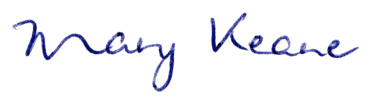 Mary Keane